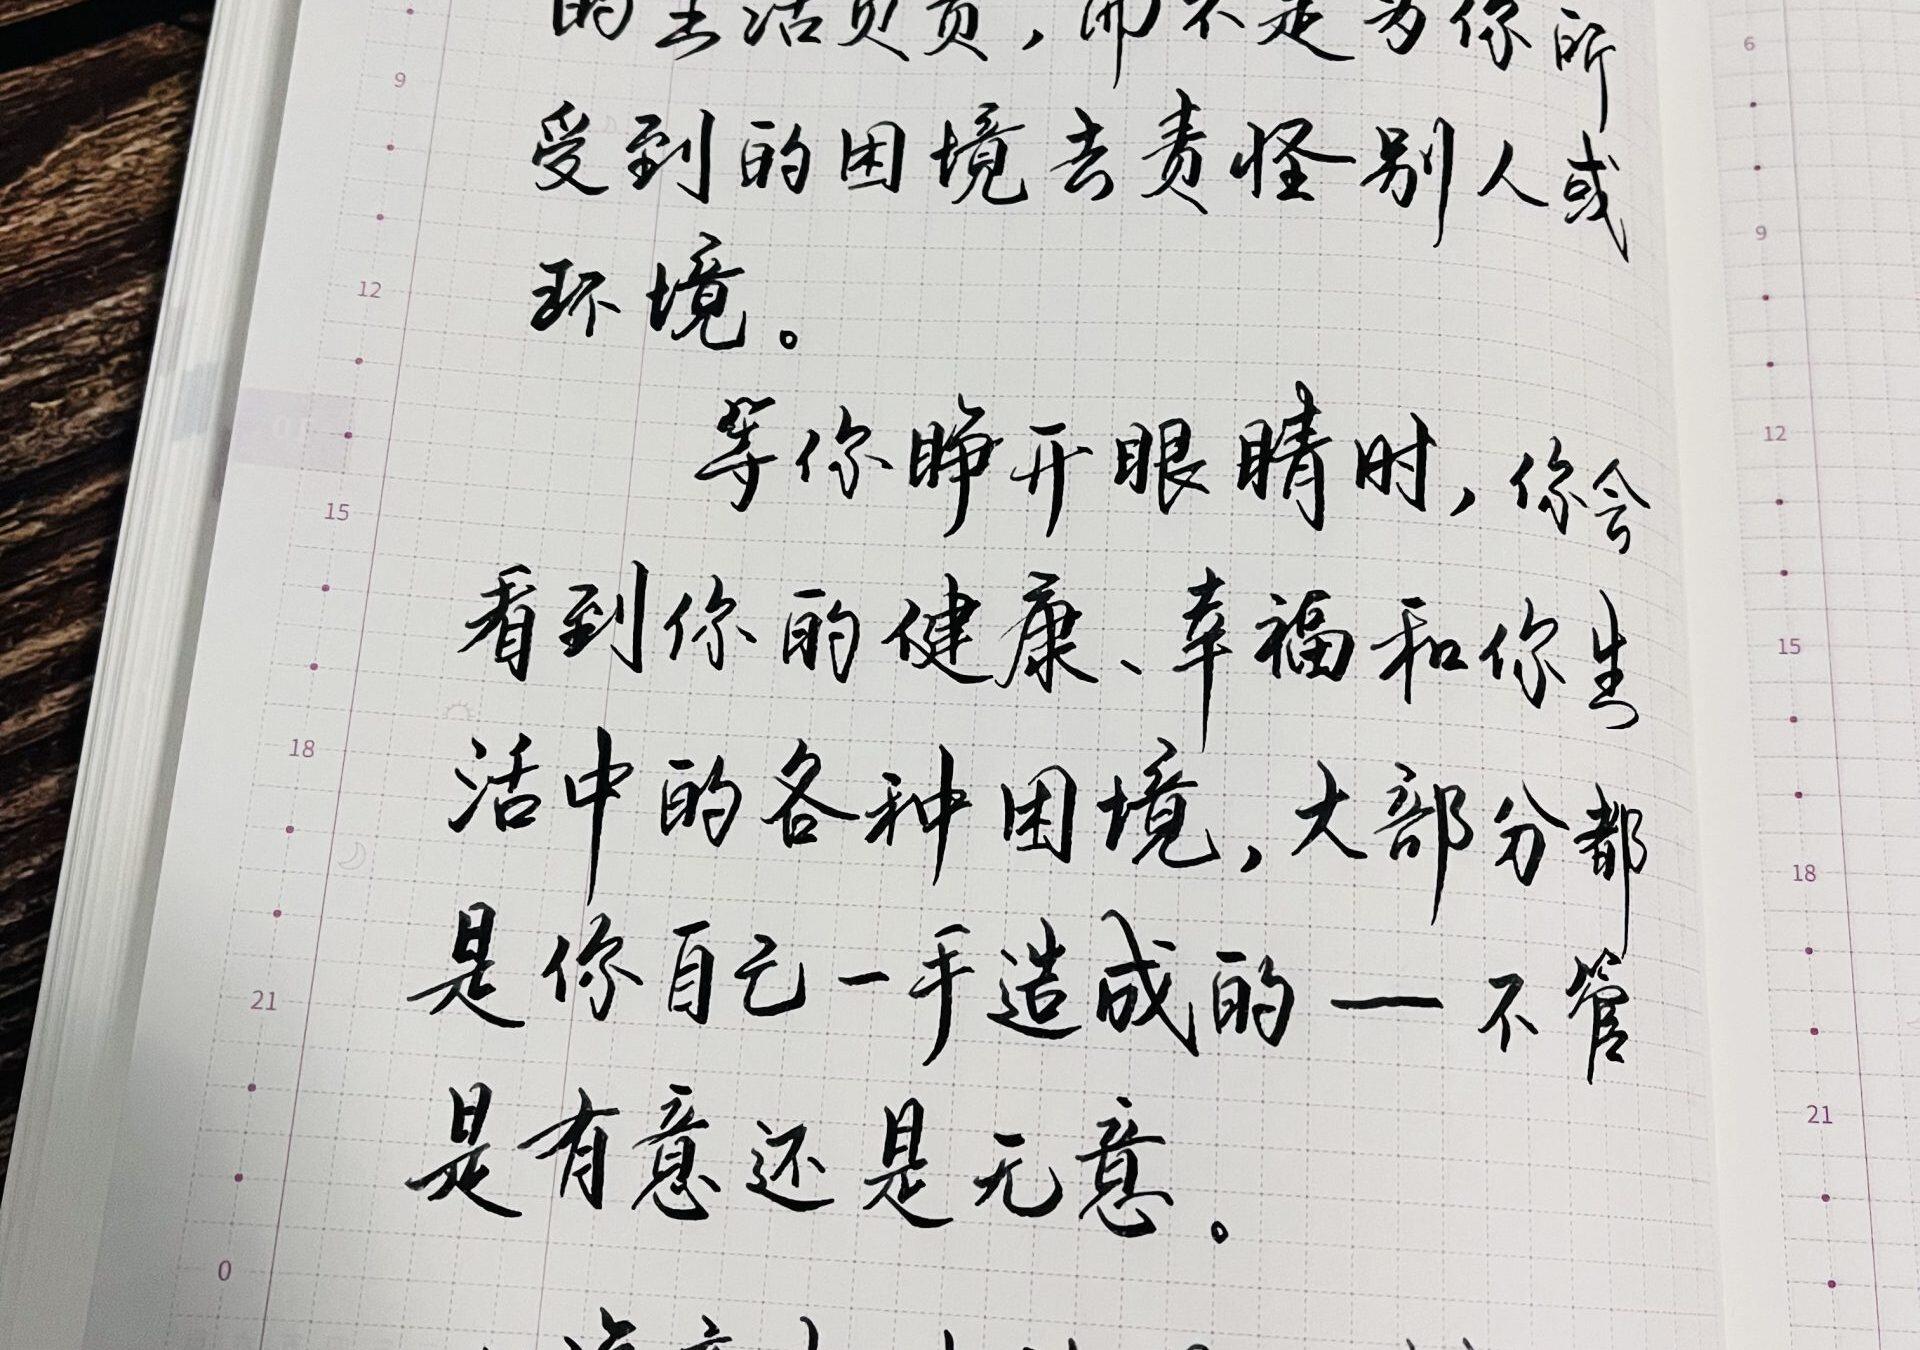 的生活负责，而不是为你所
受到的困境去责怪别人或
环境。
等你睁开眼睛时，你会
看到你的健康、幸福和你生
活中的各种困境，大部分都
是你自己一手造成的—不管
是有意还是无意。
9
12
15
18
21
0
6
9
12
15
18
21